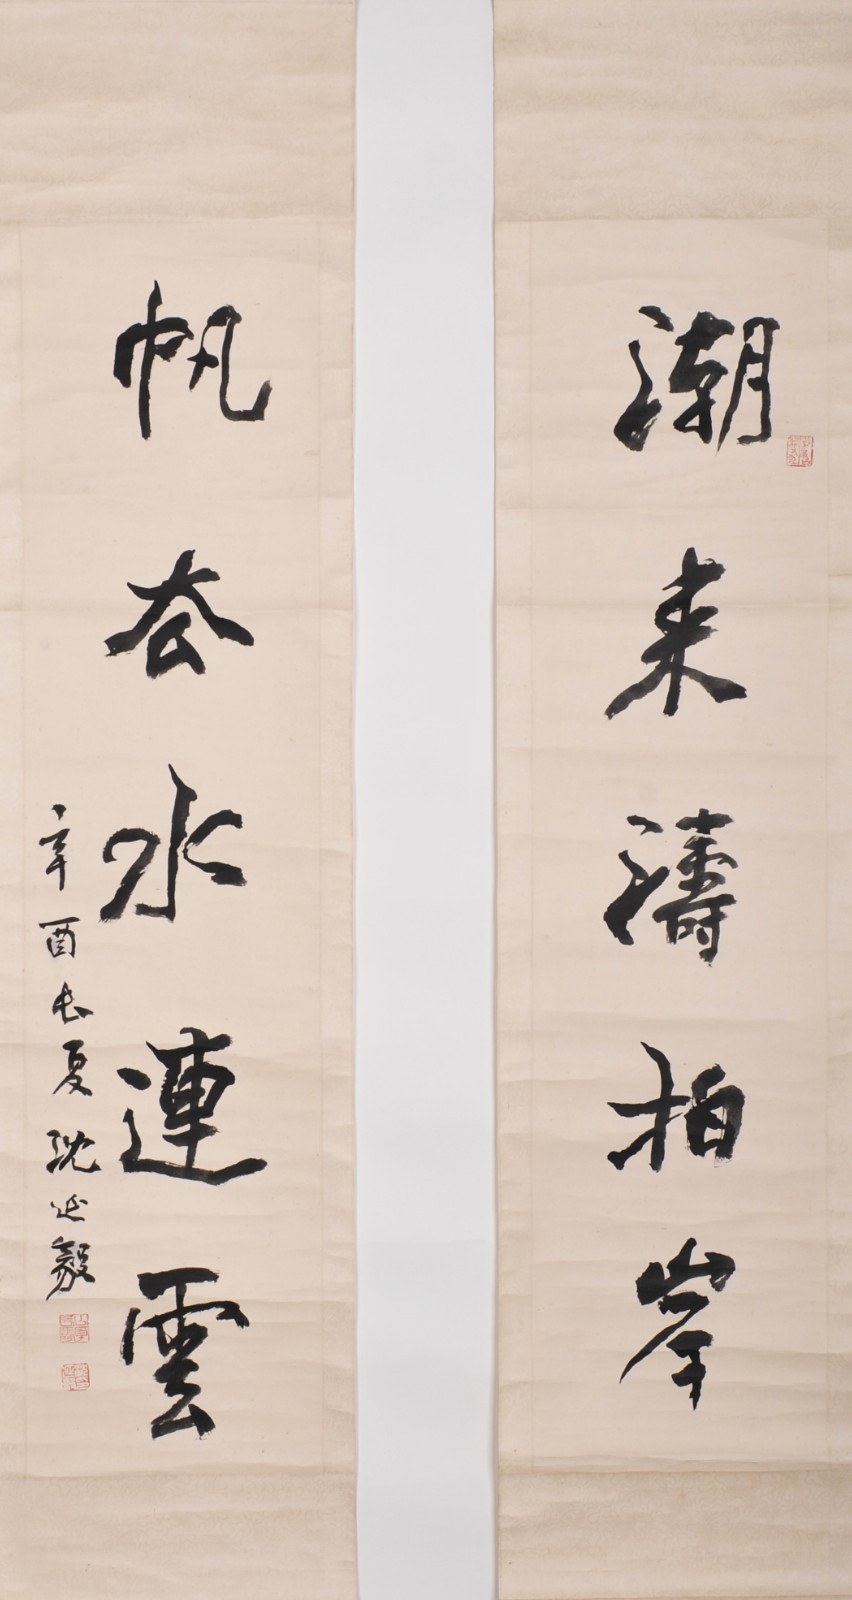 潮来濤拍岸
帆去水連雲
辛酉长夏沈延毅